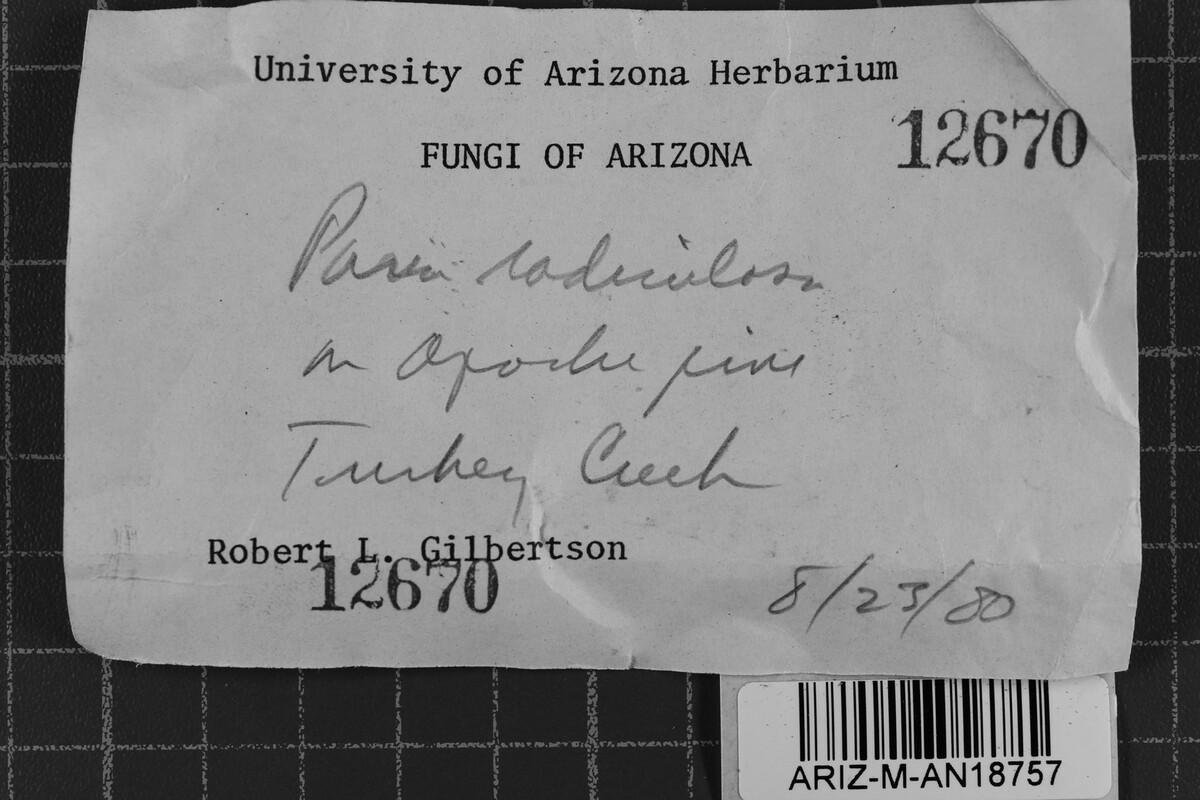 University of Arizona Herbarium
12670
FUNGI OF ARIZONA
Poria radiculosa
on Apache pine
Turkey Creek
Robert L. Gilbertson
12670
8/23/80
ARIZ-M-AN18757